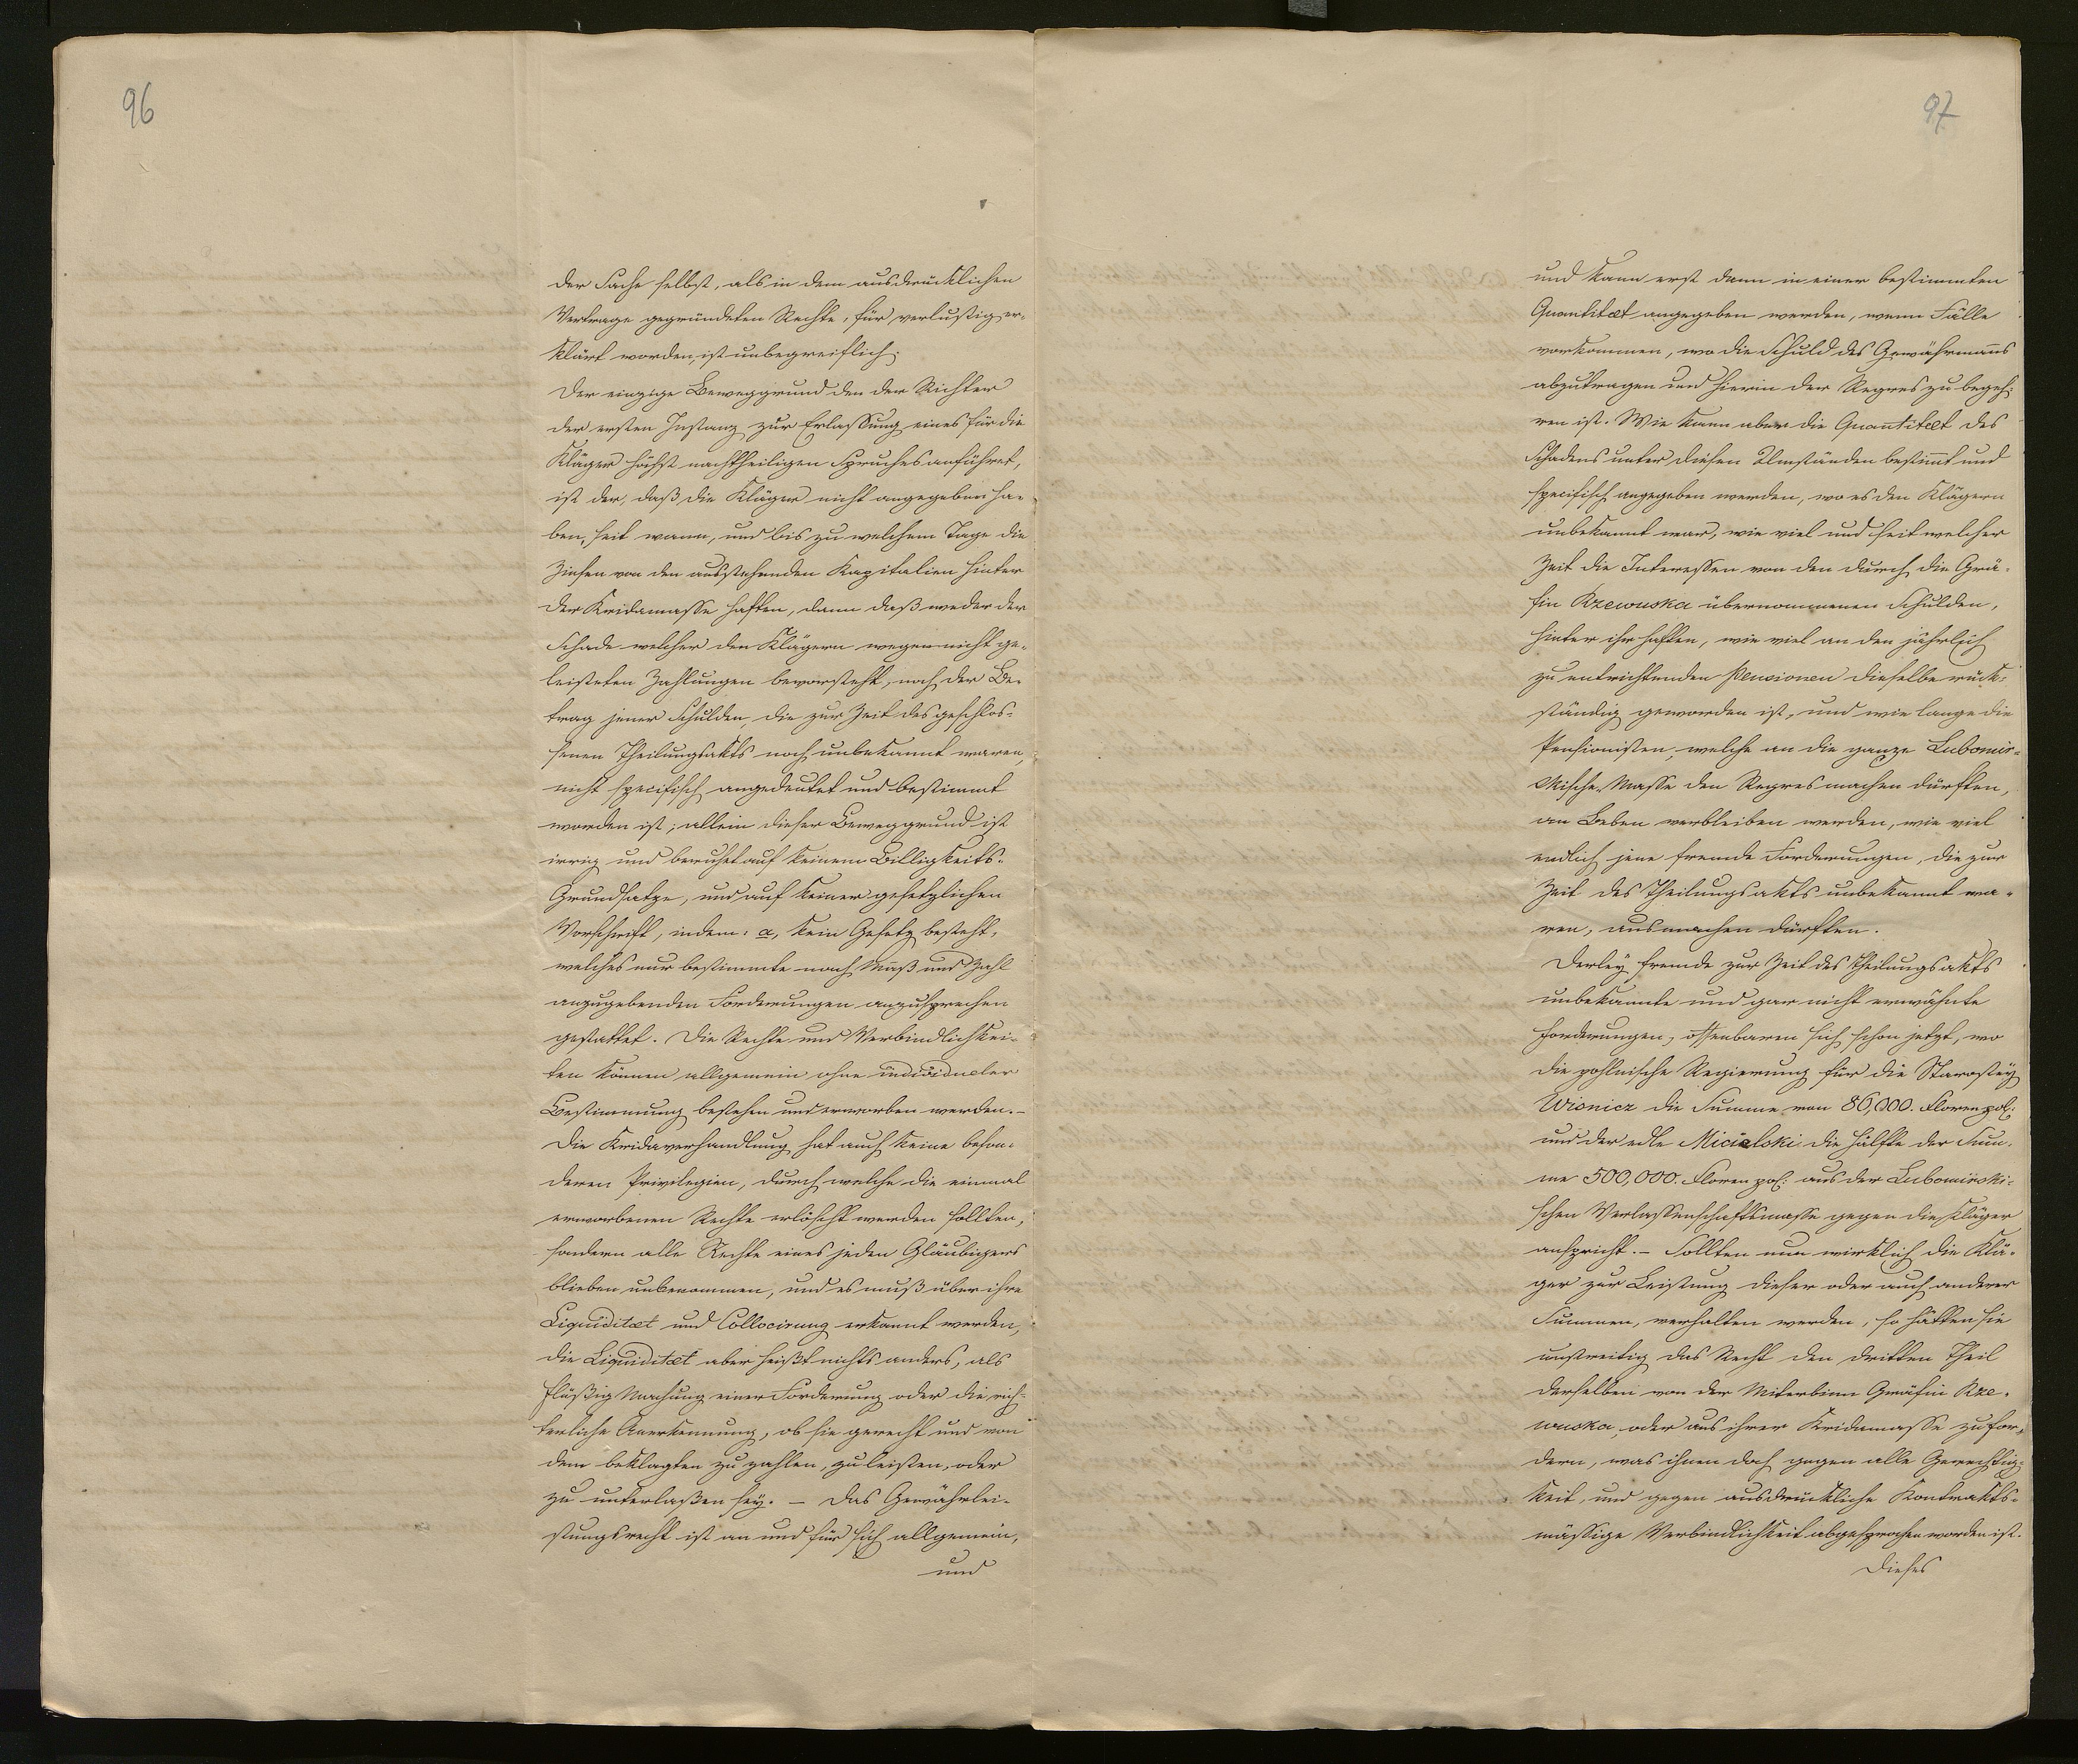 96
der Sache selbst, als in dem ausdrücklichen
Vertrage gegründeten Rechte, für verlustig er-
klärt worden, ist unbegreiflich.
Der einzige Beweggrund den der Richter
der ersten Instanz zur Erlassung eines für die
Kläger höchst nachtheiligen Spruches anführet,
ist der, daß die Kläger nicht angegeben ha-
ben, seit wann, und bis zu welchem Tage die
Zinsen von den ausstehenden Kapitalien hinter
der Kridamasse haften, dann daß weder der
Schade welcher den Klägern wegen nicht ge-
leisteten Zahlungen bevorsteht, noch der Be-
trag jener Schulden, die zur Zeit des geschlos-
senen Theilungsakts noch unbekannt waren,
nicht specifisch angedeutet und bestimmt
worden ist; allein dieser Beweggrund ist
irrig und beruhet auf keinem Billigkeits-
Grundsatze, und auf keiner gesetzlichen
Vorschrift, indem: a, kein Gesetz besteht,
welches nur bestimmte nach Maß und Zahl
anzugebenden Forderungen anzusprechen
gestattet. Die Rechte und Verbindlichkei-
ten können allgemein ohne individueler
Bestimmung bestehen und erworben werden.-
Die Kridaverhandlung hat auch keine beson-
deren Privilegien, durch welche die einmal
erworbenen Rechte erlöscht werden sollten,
sondern alle Rechte eines jeden Gläubigers
blieben unbenommen, und es muß über ihre
Liquiditæt und Collocirung erkannt werden,
die Liquiditæt aber heißt nichts anders, als
flüßig Machung einer Forderung oder die rich-
terliche Anerkennung, ob sie gerecht und von
dem beklagten zu zahlen, zu leisten, oder
zu unterlaßen sey. – Das Gewährlei-
stungsrecht ist an und für sich allgemein,
und
97
und kann erst dann in einer bestimmten
Quantitæt angegeben werden, wenn Fälle
vorkommen, wo die Schuld des Gewährmanns
abzutragen und hierin der Regres zu begeh-
ren ist. Wie kann aber die Quantitæt des
Schadens unter diesen Umständen bestimmt und
specifisch angegeben werden, wo es den Klägern
unbekannt war, wie viel und seit welcher
Zeit die Interessen von den durch die Grä-
fin Rzewuska übernommenen Schulden,
hinter ihr haften, wie viel an den jährlich
zu entrichtenden Pensionen dieselbe rück-
ständig geworden ist, und wie lange die
Pensionisten, welche an die ganze Lubomir-
skische Masse den Regres machen dürften,
am Leben verbleiben werden, wie viel
endlich jene fremde Forderungen, die zur
Zeit des Theilungsakts unbekannt wa-
ren, ausmachen dürften.
Derley fremde zur Zeit des Theilungsakts
unbekannte und gar nicht erwähnte
Forderungen, offenbaren sich schon jetzt, wo
die pohlnische Regierung für die Starostey
Wisnicz die Summe von 86,000. Floren pol:
und der edle Micielski die Hälfte der Sum-
me 500,000. Floren pol: aus der Lubomirski-
schen Verlassenschaftsmasse gegen die Kläger
anspricht.– Sollten nun wirklich die Klä-
ger zur Leistung dieser oder auch anderer
Summen, verhalten werden, so hätten sie
unstreitig das Recht den dritten Theil
derselben von der Miterbinn Gräfin Rze-
wuska, oder aus ihrer Kridamasse zu for-
dern, was ihnen doch gegen alle Gerechtig-
keit, und gegen ausdrückliche Kontrakts-
mässige Verbindlichkeit abgesprochen worden ist.
Dieses